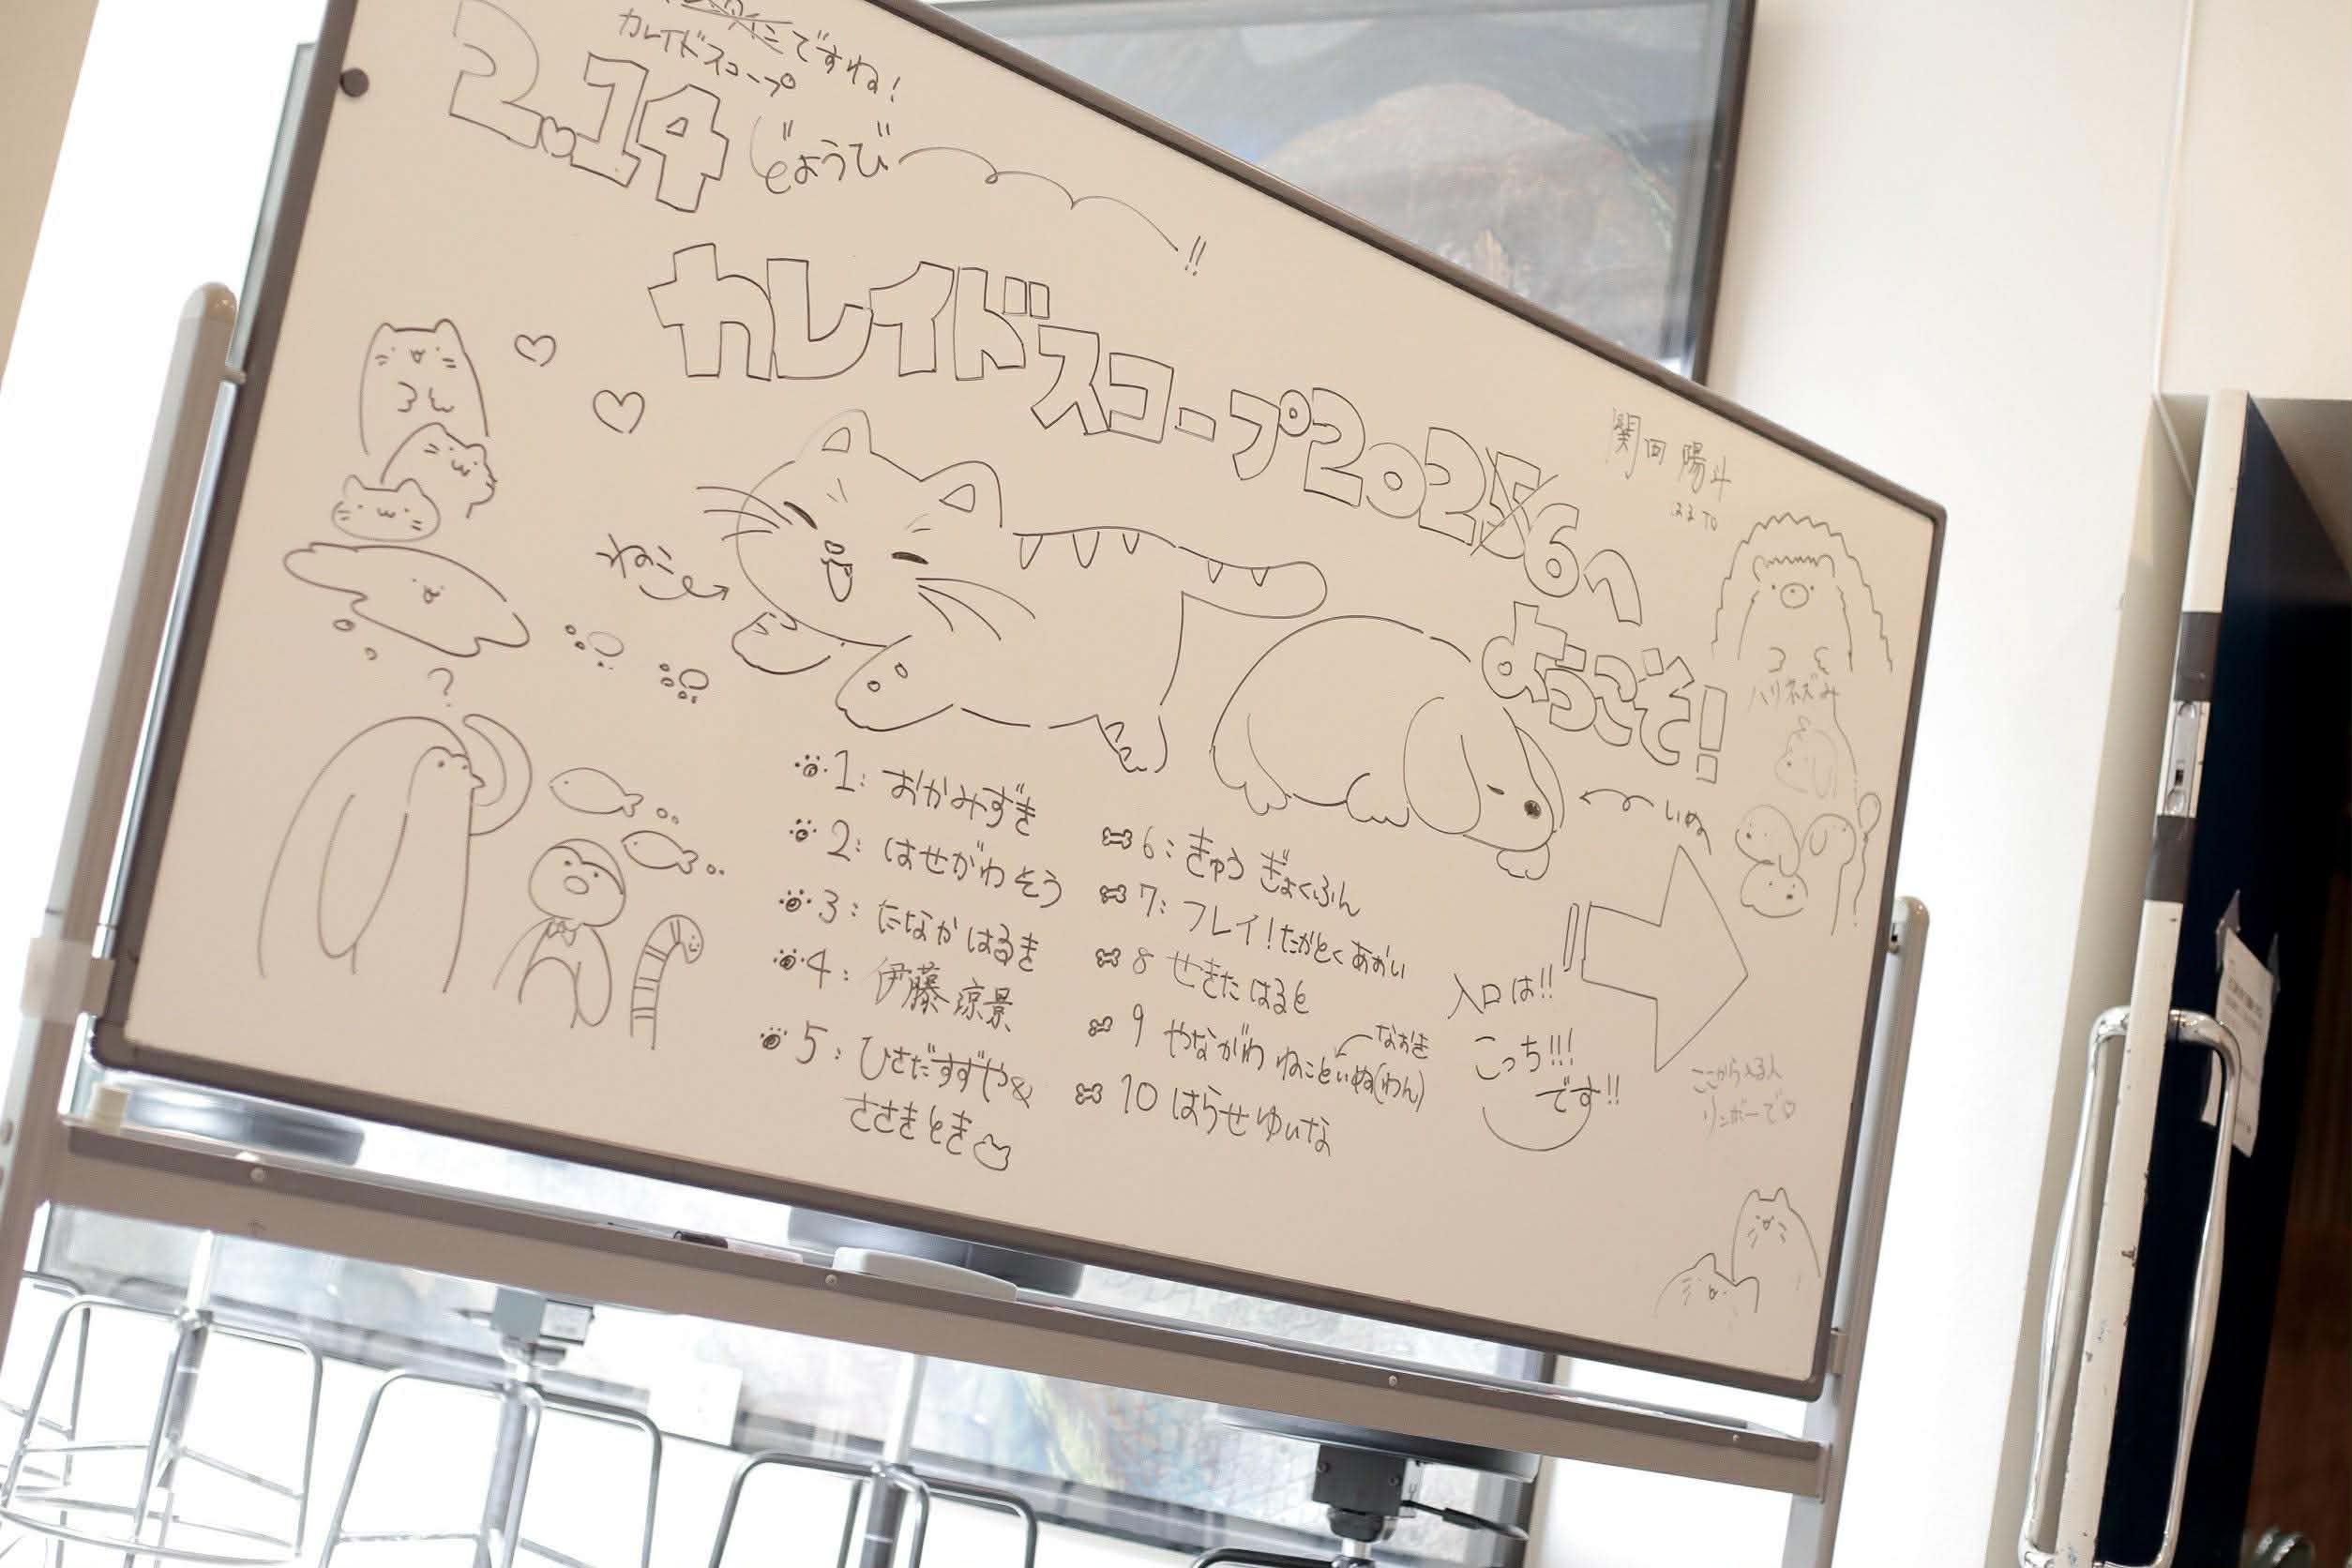 ですね!
カレイドスコープ
2.14 どようび !!
カレイドスコープ20256へ
ようこそ!
関田 陽斗
はるTO
ハリネズみ
ねこ
いぬ
?
1: おかみずき
2: はせがわ そう
3: たなか はるき
4: 伊藤 涼景
5: ひさだすずや&
ささきとき
6: きゅう ぎょくふん
7: フレイ!たかとく あおい
8 せきた はると
なおき
9 やながわ ねこといぬ(わん)
10 はらせ ゆいな
入口は!!
こっち!!!
です!!
ここから入る人
リンボーで♡